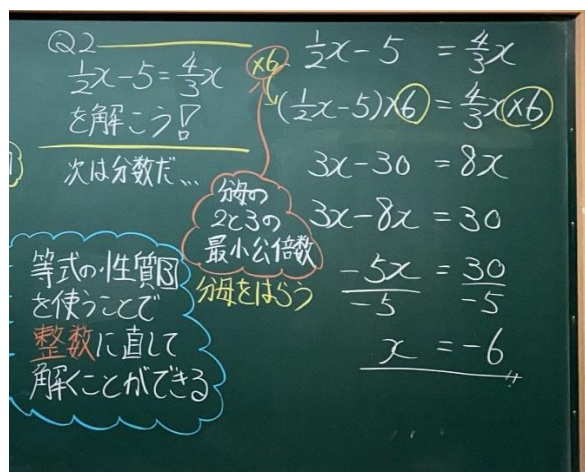 Q2
1/2x-5=4/3x
を解こう!
次は分数だ、、、
等式の性質3
を使うことで
整数に直して
解くことができる
×6
分母の
2と3の
最小公倍数
分母をはらう
1/2x-5 = 4/3x
(1/2x-5)×6 = 4/3x×6
3x-30 = 8x
3x-8x = 30
-5x/-5 = 30/-5
x = -6